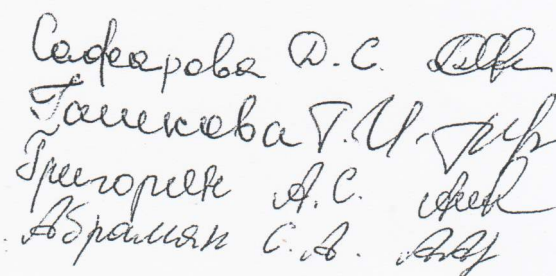 Сафарова Д.С.
Ташкова Т.И.
Григорян А.С.
Абрамян С.А.